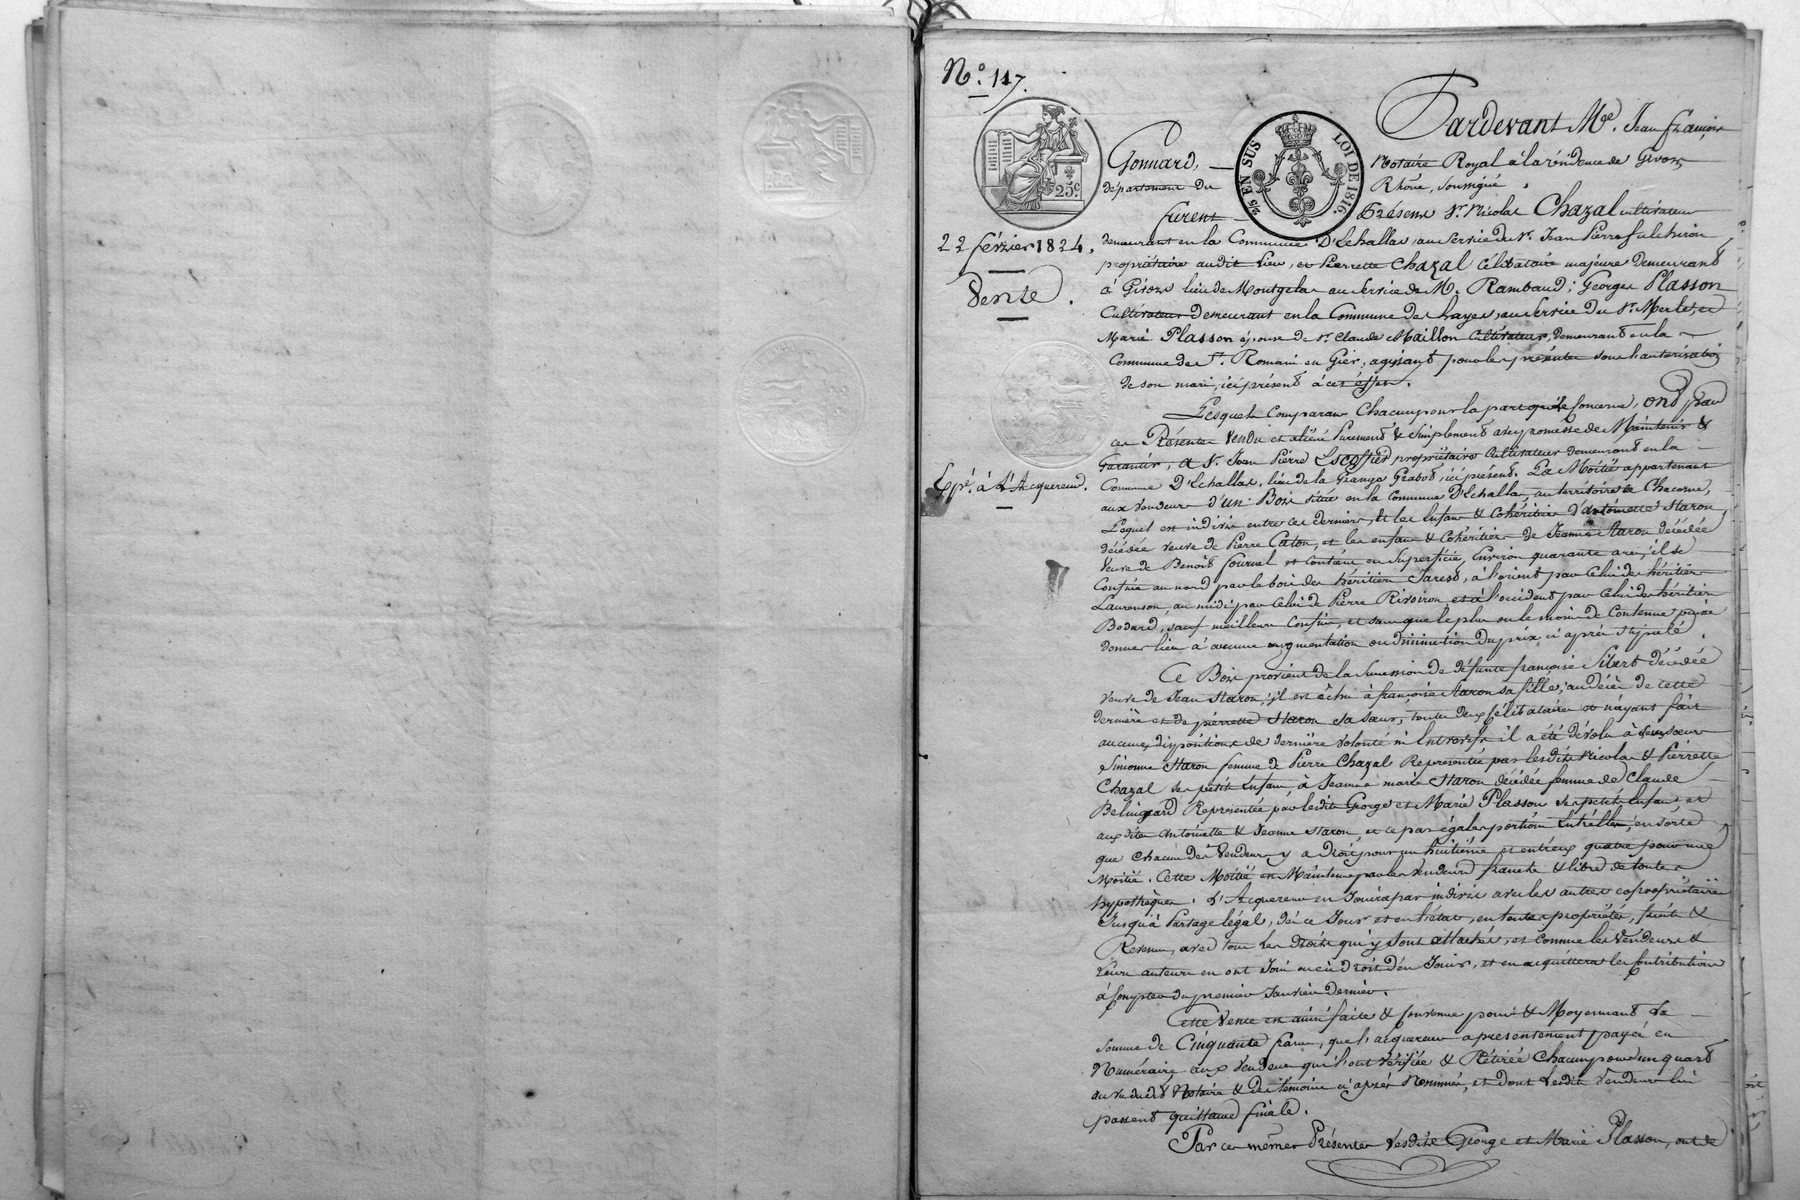 N.º 117.
Pardevant Me. Jean françois
Gonnard, Notaire Royal à la résidence de Givors,
département du Rhône, soussigné.
25c.
2/5 EN SUS LOI DE 1816.
furent Présens Sr. Nicolas Chazal cultivateur
22 février 1824.
demeurant en la Commune D'Echallas, au service du Sr. Jean Pierre fulchiron
propriétaire audit lieu, et Pierrette Chazal Célibataire majeure demeurant
Vente.
à Givors lieu de Montgelas au service de M. Rambaud; George Plasson
Cultivateur demeurant en la Commune des hayes, au service du Sr. Merle, et
Marie Plasson épouse de Sr. Claude Maillon Cultivateur, demeurant en la
Commune de St. Romain en Gier, agissant pour les présentes sous l'autorisation
de son mari, ici présent à cet effet.
Lesquels Comparans Chacun pour la part qui le Concerne, ont par
ces Présentes Vendu et aliéné Purement & Simplement avec promesse de Maintenir &
Garantir, à Sr. Jean Pierre Escoffier propriétaire Cultivateur demeurant en la
Expé. à L'Acquereur.
Commune D'Echallas, lieu de la Grange Grabot, ici présent. La Moitié appartenant
aux Vendeurs d'un Bois situé en la Commune D'Echallas, au territoire de Chacorne,
Lequel est indivis entre ces derniers, & les Enfans & Cohéritiers d'Antoinette Staron,
décédée veuve de Pierre Caton, et les enfans & Cohéritiers de Jeanne Staron décédée
Veuve de Benoît fournel et Contient en Superficie, Environ quarante ares, il se
Confine au nord par le bois des héritiers Jarest, à l'orient par Celui des héritiers
Laurenson, au midi par Celui de Pierre Rivoiron et à l'occident par Celui des héritiers
Bodard, sauf meilleurs Confins, et sans que le plus ou le moins de Contenue puisse
donner lieu à aucune augmentation ou diminution du prix ci après Stipulé.
Ce Bois provient de la Succession de défunte françoise décédée
Veuve de Jean Staron; il est échu à françoise Staron sa fille; au décès de cette
dernière et de pierrette Staron sa sœur, toutes deux Célibataires & n'ayant fait
aucunes dispositions de dernière volonté ni Entrevifs il a été dévolu à leurs sœurs
Simonne Staron femme de Pierre Chazal Représentée par lesdits Nicolas & Pierrette
Chazal ses petits Enfans à Jeanne marie Staron décédée femme de Claude
Belingard Représentée par lesdits George et Marie Plasson ses petits Enfans, et
aux dites Antoinette & Jeanne Staron, et ce par égales portions Entr'elles; en sorte
que Chacun des Vendeurs y a Droit pour un huitième et entr'eux quatre pour une
Moitié. Cette Moitié est Maintenue par les Vendeurs franche & libre de toutes
hypothèques. L'Acquereur en Jouira par indivis avec les autres copropriétaires
Jusqu'à Partage légal, dès ce Jour et en l'état, en toutes propriétés, fruits &
Revenus, avec tous les Droits qui y sont attachés, et comme les Vendeurs &
Leurs auteurs en ont Joui ou eu droit d'en Jouir, et en acquittera les Contributions
à Compter du premier Janvier Dernier.
Cette Vente est ainsi faite & Convenue pour & Moyennant la
somme de Cinquante francs, que l'acquereur a présentement payée en
Numéraire aux Vendeurs qui l'ont vérifiée & Retirée Chacun pour un quart
au vu dudit Notaire & des témoins ci après Nommés, et dont lesdits Vendeurs lui
passent quittance finale.
Par ces mêmes Présentes lesdits George et Marie Plasson, ont de